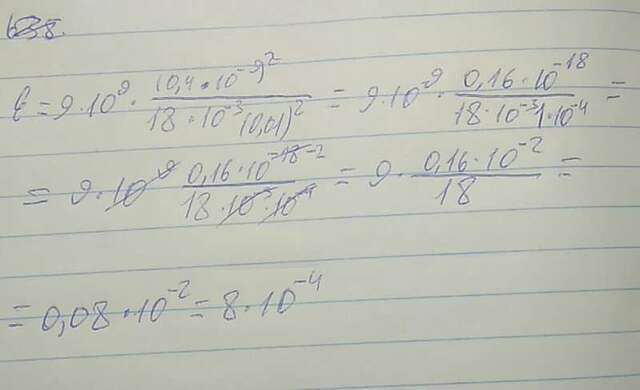 638.
ℓ = 9·10⁹ · (0,4·10⁻⁹)² / 18·10⁻³ (0,01)² = 9·10⁹ · 0,16·10⁻¹⁸ / 18·10⁻³ 1·10⁻⁴ =
= 9·10⁹ 0,16·10⁻¹⁸ ⁻² / 18·10⁻³·10⁻⁴ = 9 · 0,16·10⁻² / 18 =
= 0,08·10⁻² = 8·10⁻⁴